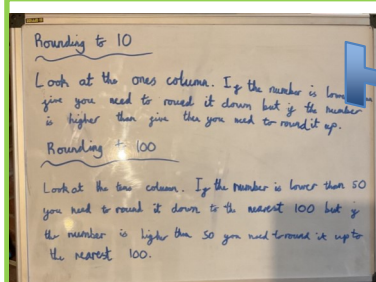 Rounding to 10
Look at the ones column. If the number is lower
five you need to round it down but if the number
is higher than five then you need to round it up.
Rounding to 100
Look at the tens column. If the number is lower than 50
you need to round it down to the nearest 100 but if
the number is higher than 50 you need to round it up to
the nearest 100.